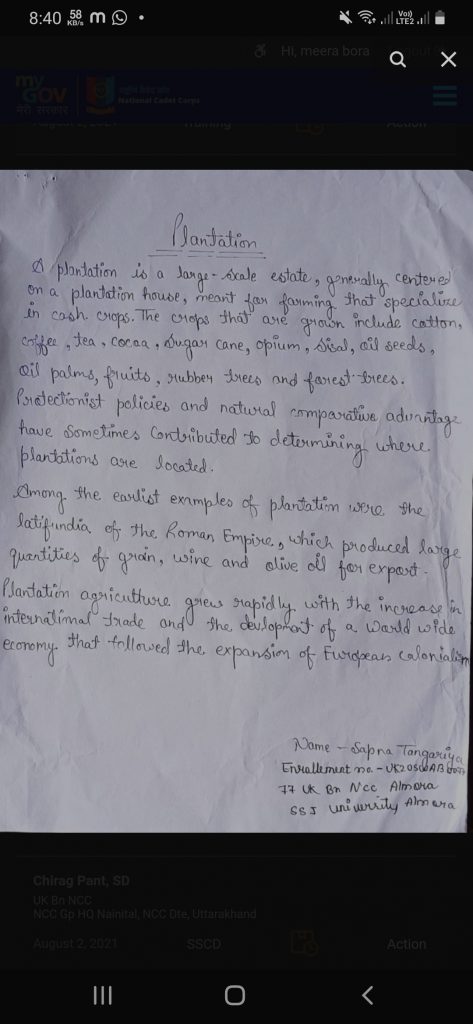 8:40 58 KB/s m Vo)) LTE2
Hi, meera bora
my
GOV
मेरी सरकार
National Cadet Corps
August 2, 2021 Training Action
Plantation
A plantation is a large-scale estate, generally centered
on a plantation house, meant for farming that specialize
in cash crops. The crops that are grown include cotton,
coffee, tea, cocoa, sugar cane, opium, sisal, oil seeds,
oil palms, fruits, rubber trees and forest trees.
Protectionist policies and natural comparative advantage
have sometimes contributed to determining where
plantations are located.
Among the earlist examples of plantation were the
latifundia of the Roman Empire, which produced large
quantities of grain, wine and olive oil for export.
Plantation agriculture grew rapidly with the increase in
international trade and the devlopment of a world wide
economy that followed the expansion of European colonialism
Name - Sapna Tangariya
Enrallement no. -
77 UK Bn NCC Almora
SSJ University Almora
Chirag Pant, SD
UK Bn NCC
NCC Gp HQ Nainital, NCC Dte, Uttarakhand
August 2, 2021 SSCD Action